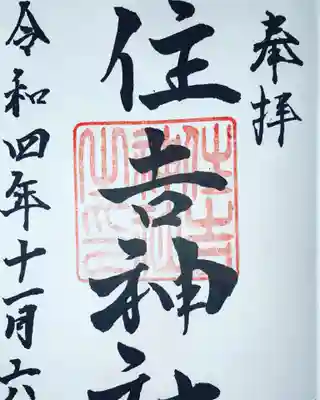 奉拝
住吉神社
令和四年十一月六